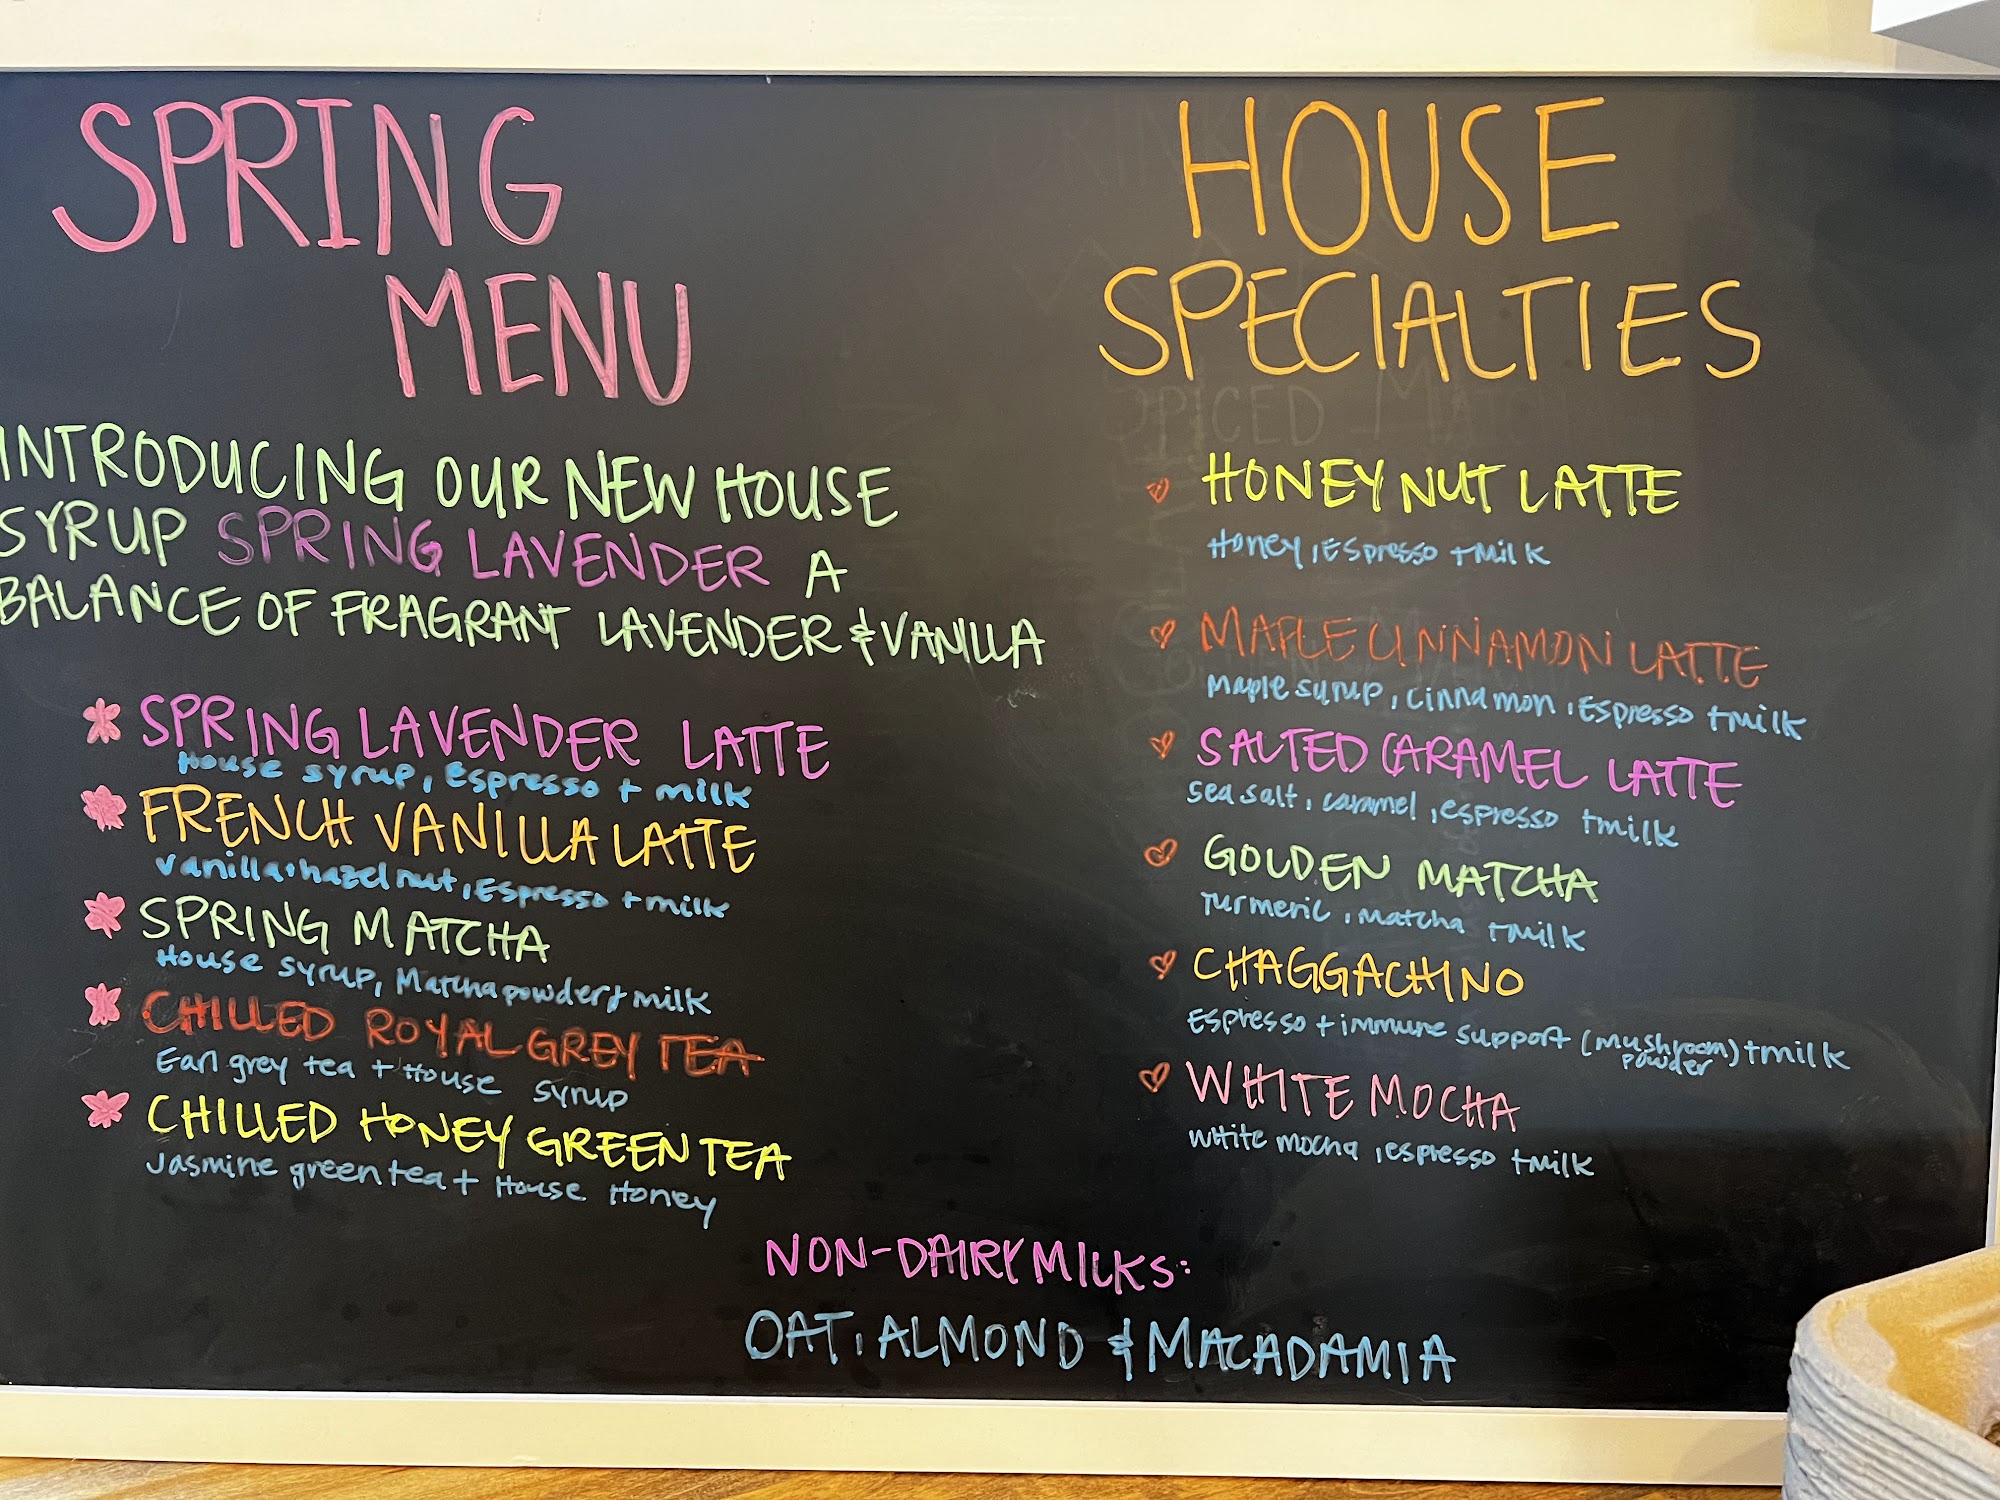 SPRING
MENU
INTRODUCING OUR NEW HOUSE
SYRUP SPRING LAVENDER A
BALANCE OF FRAGRANT LAVENDER & VANILLA
SPRING LAVENDER LATTE
House syrup, Espresso + milk
FRENCH VANILLA LATTE
vanilla + hazelnut, Espresso + milk
SPRING MATCHA
House syrup, Matcha powder + milk
CHILLED ROYAL GREY TEA
Earl grey tea + House syrup
CHILLED HONEY GREEN TEA
Jasmine green tea + House Honey
HOUSE
SPECIALTIES
HONEY NUT LATTE
Honey, Espresso + Milk
MAPLE CINNAMON LATTE
Maple syrup, cinnamon, Espresso + milk
SALTED CARAMEL LATTE
sea salt, caramel, espresso + milk
GOLDEN MATCHA
Turmeric, Matcha + milk
CHAGGACHINO
Espresso + immune support (mushroom) + milk
powder
WHITE MOCHA
White mocha, espresso + milk
NON-DAIRY MILKS:
OAT, ALMOND & MACADAMIA